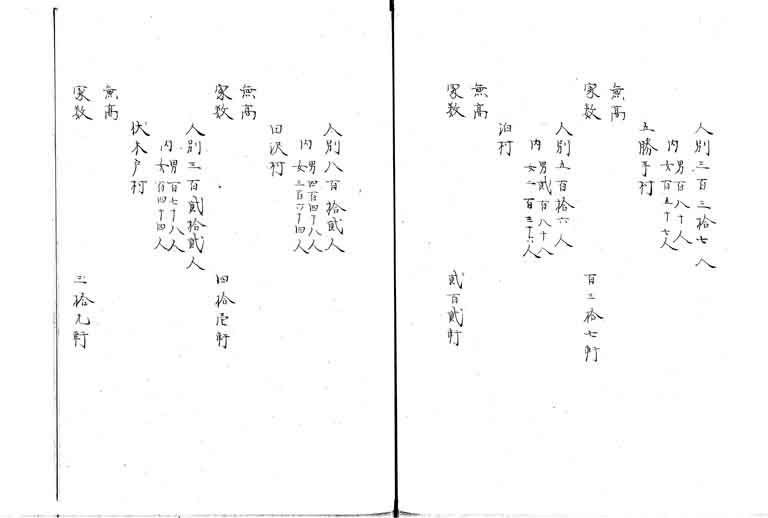 人別三百三拾七人
内男百八十人
女百五十七人
五勝手村
無高
家数 百三拾七軒
人別五百拾六人
内男貳百八十人
女二百三十六人
泊村
無高
家数 貳百貳軒
人別八百拾貳人
内男四百四十八人
女三百六十四人
田沢村
無高
家数 四拾壱軒
人別三百貳拾貳人
内男百七十八人
女百四十四人
伏木戸村
無高
家数 三拾九軒